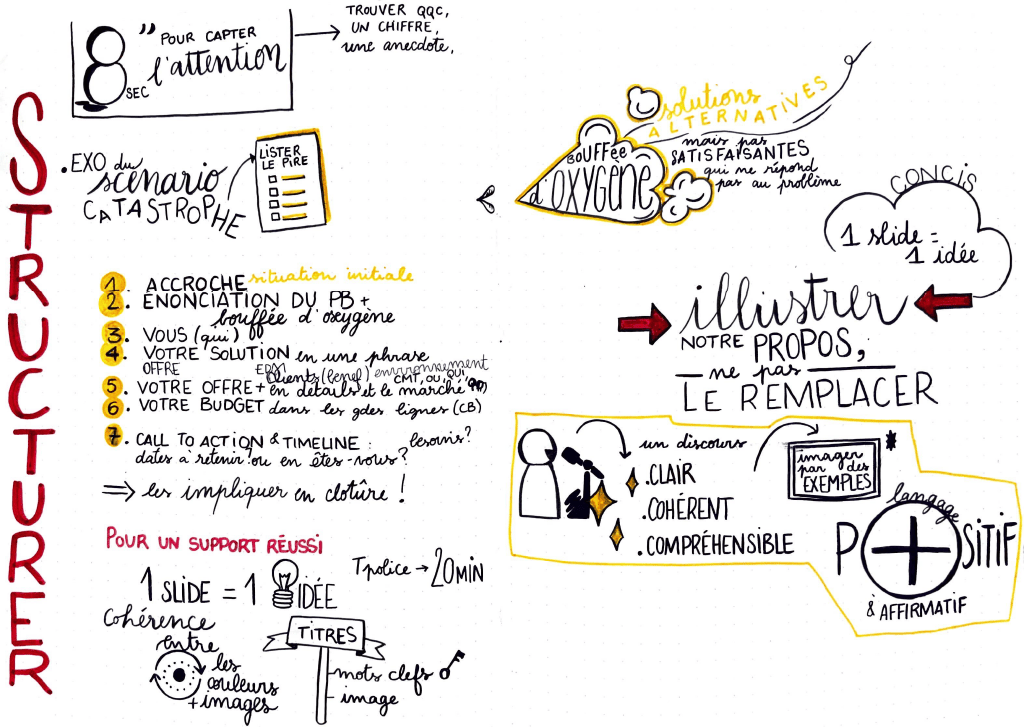 STRUCTURER
8 SEC
" POUR CAPTER
l'attention
TROUVER QQC,
UN CHIFFRE,
une anecdote,
.EXO du
scenario
CATASTROPHE
LISTER
LE PIRE
1. ACCROCHE situation initiale
2. ÉNONCIATION DU PB +
bouffée d'oxygène
3. VOUS (qui)
4. VOTRE SOLUTION en une phrase
OFFRE
clients (benef) environnement
CMT, OU, QUI
5. VOTRE OFFRE + en détails et le marché
6. VOTRE BUDGET dans les gdes lignes (CB)
7. CALL TO ACTION & TIMELINE : besoins?
dates à retenir? ou en êtes-vous?
⇒ les impliquer en clotûre !
POUR UN SUPPORT RÉUSSI
1 SLIDE = 1 IDÉE
T police → 20 MIN
cohérence
entre
les
couleurs
+ images
TITRES
mots clefs
image
solutions
ALTERNATIVES
mais pas
SATISFAISANTES
qui ne répond
pas au problème
BOUFFée
d'OXYGÈNE
CONCIS
1 slide =
1 idée
illustrer
NOTRE PROPOS,
ne pas
LE REMPLACER
un discours
.CLAIR
.COHÉRENT
.COMPRÉHENSIBLE
imager
par des
EXEMPLES
*
langage
P+SITIF
& AFFIRMATIF